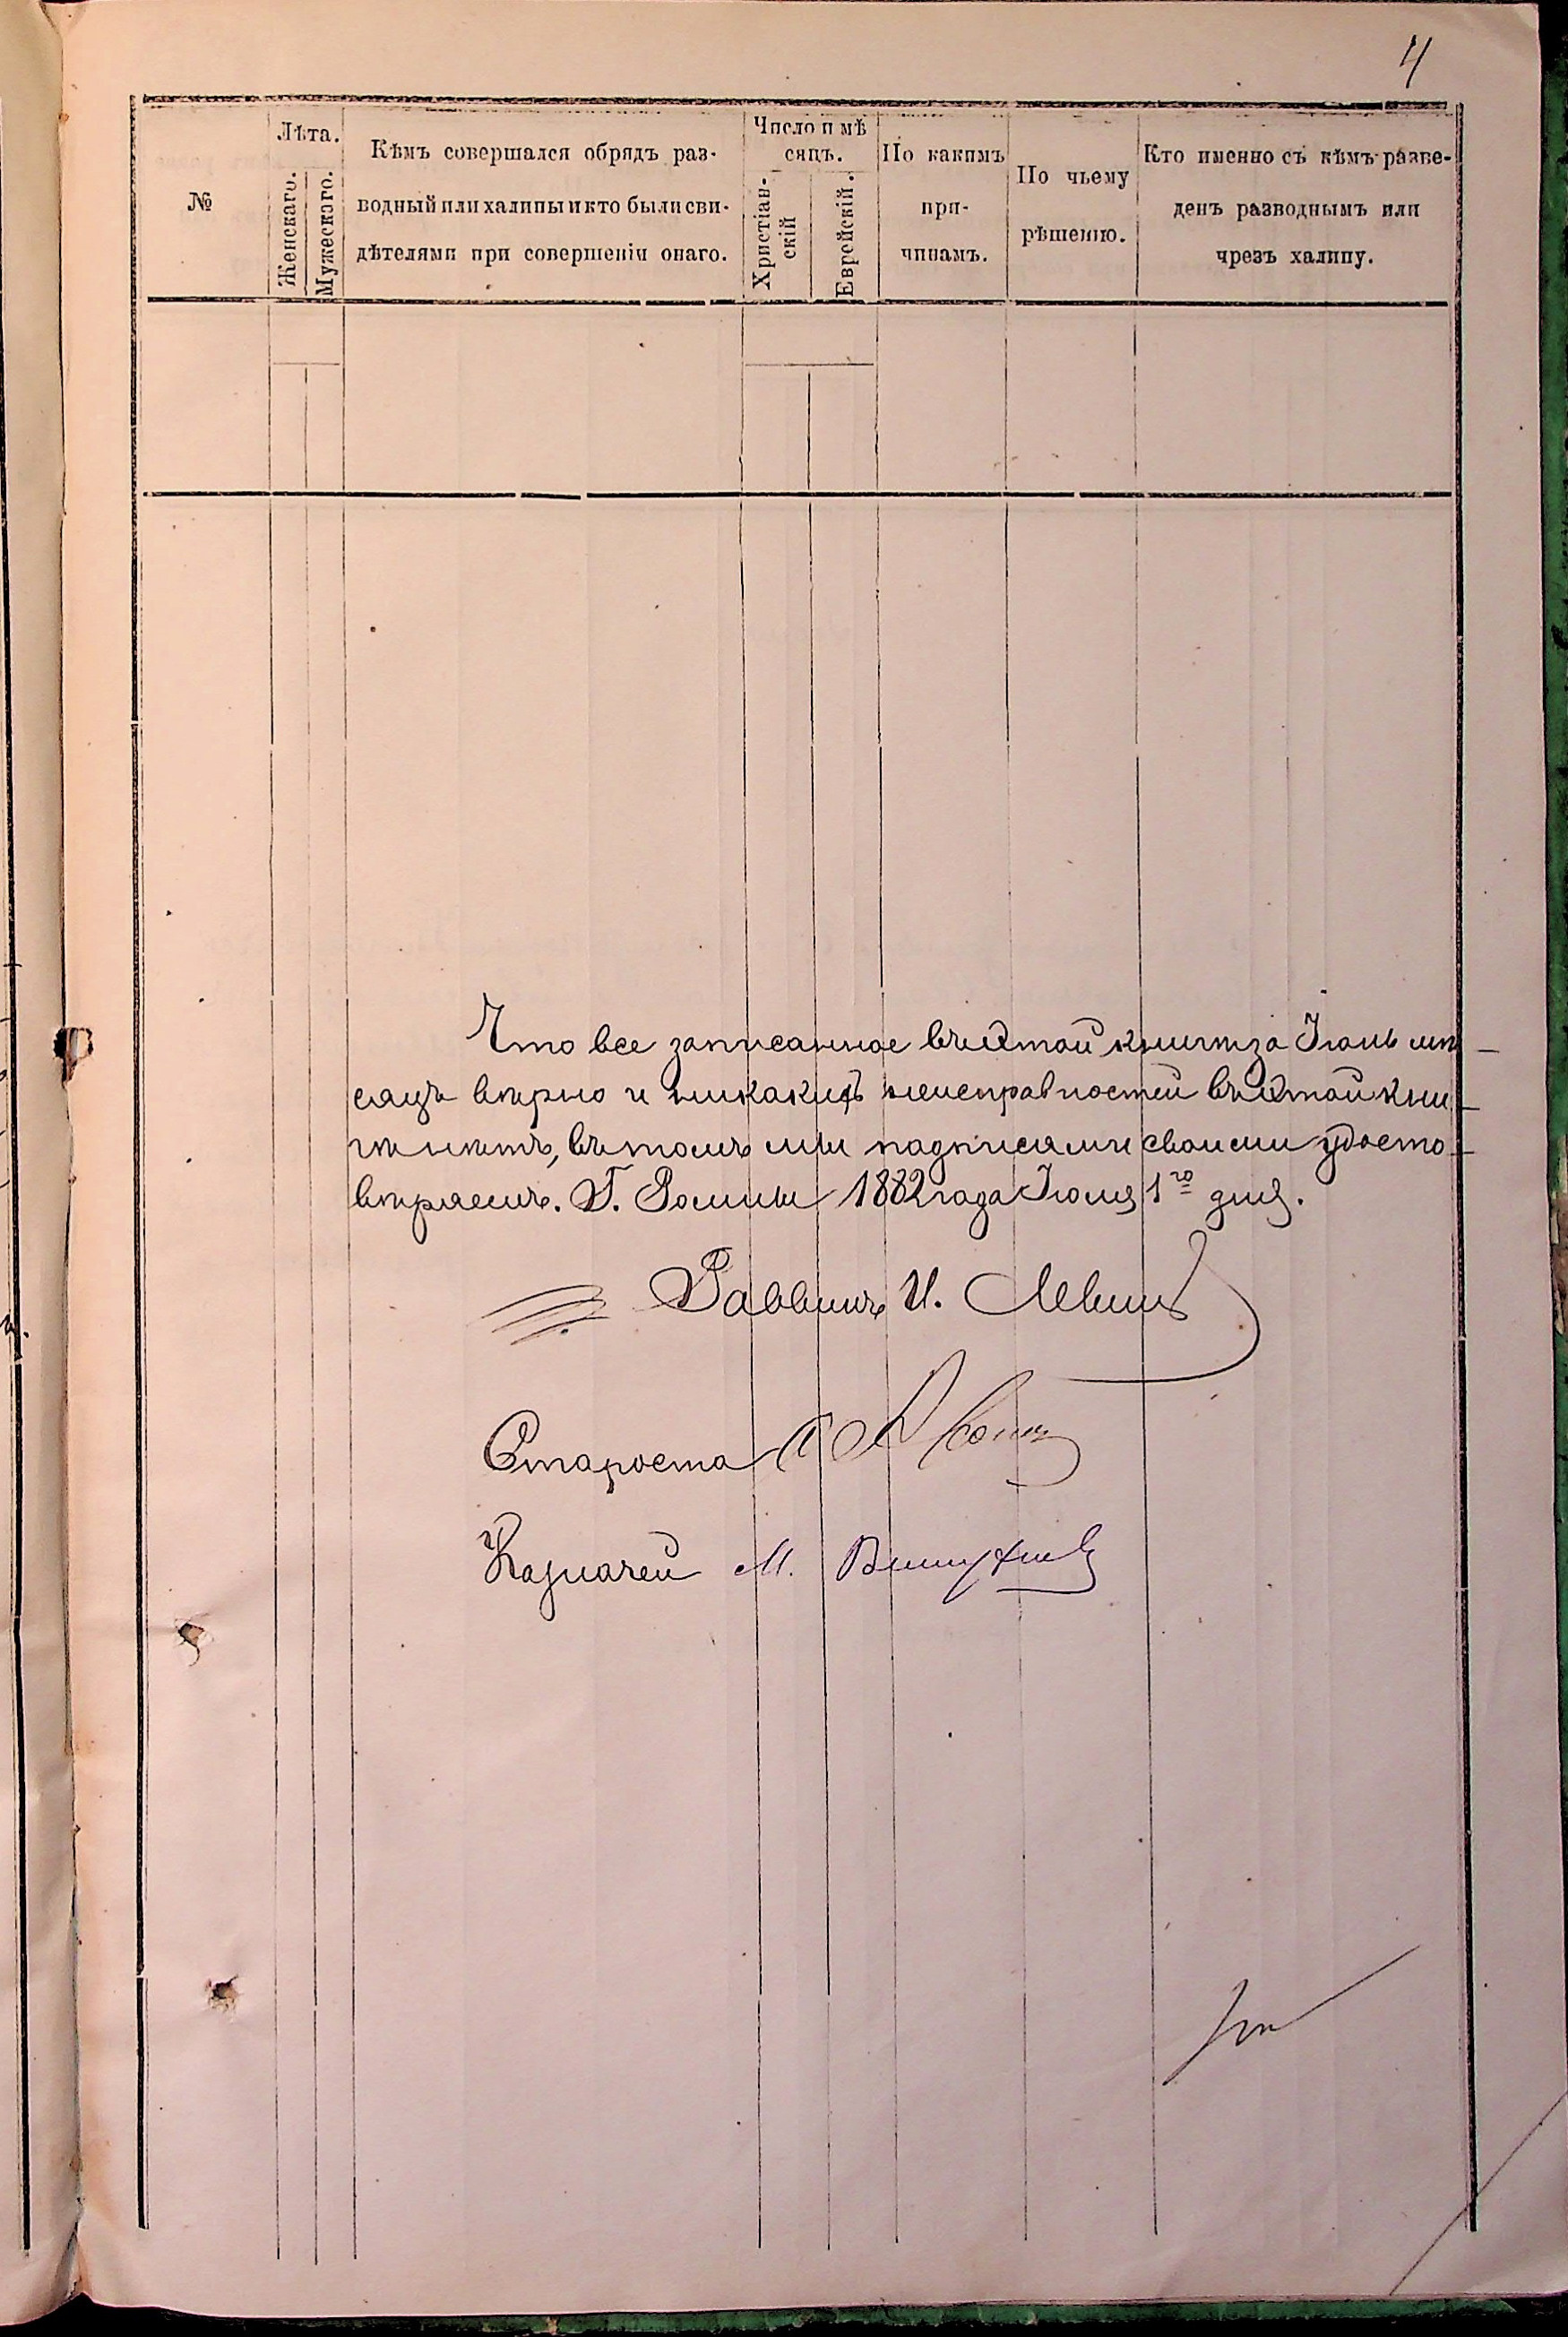 4
№
Лѣта.
Женскаго.
Мужескаго.
Кѣмъ совершался обрядъ раз-
водный или халицы и кто были сви-
дѣтелями при совершеніи онаго.
Число и мѣ
сяцъ.
Христіан-
скій
Еврейскій.
По какимъ
при-
чинамъ.
По чьему
рѣшенію.
Кто именно съ кѣмъ разве-
денъ разводнымъ или
чрезъ халицу.
Что все записанное въ этой книгѣ за Іюнь мѣ
сяцъ вѣрно и никакихъ неисправностей въ этой кни
гѣ нѣтъ, въ томъ мы подписями своими удосто
вѣряемъ. Г. Ромны 1882 года Іюля 1го дня.
Раввинъ И. Левинъ
Староста
Казначей М.